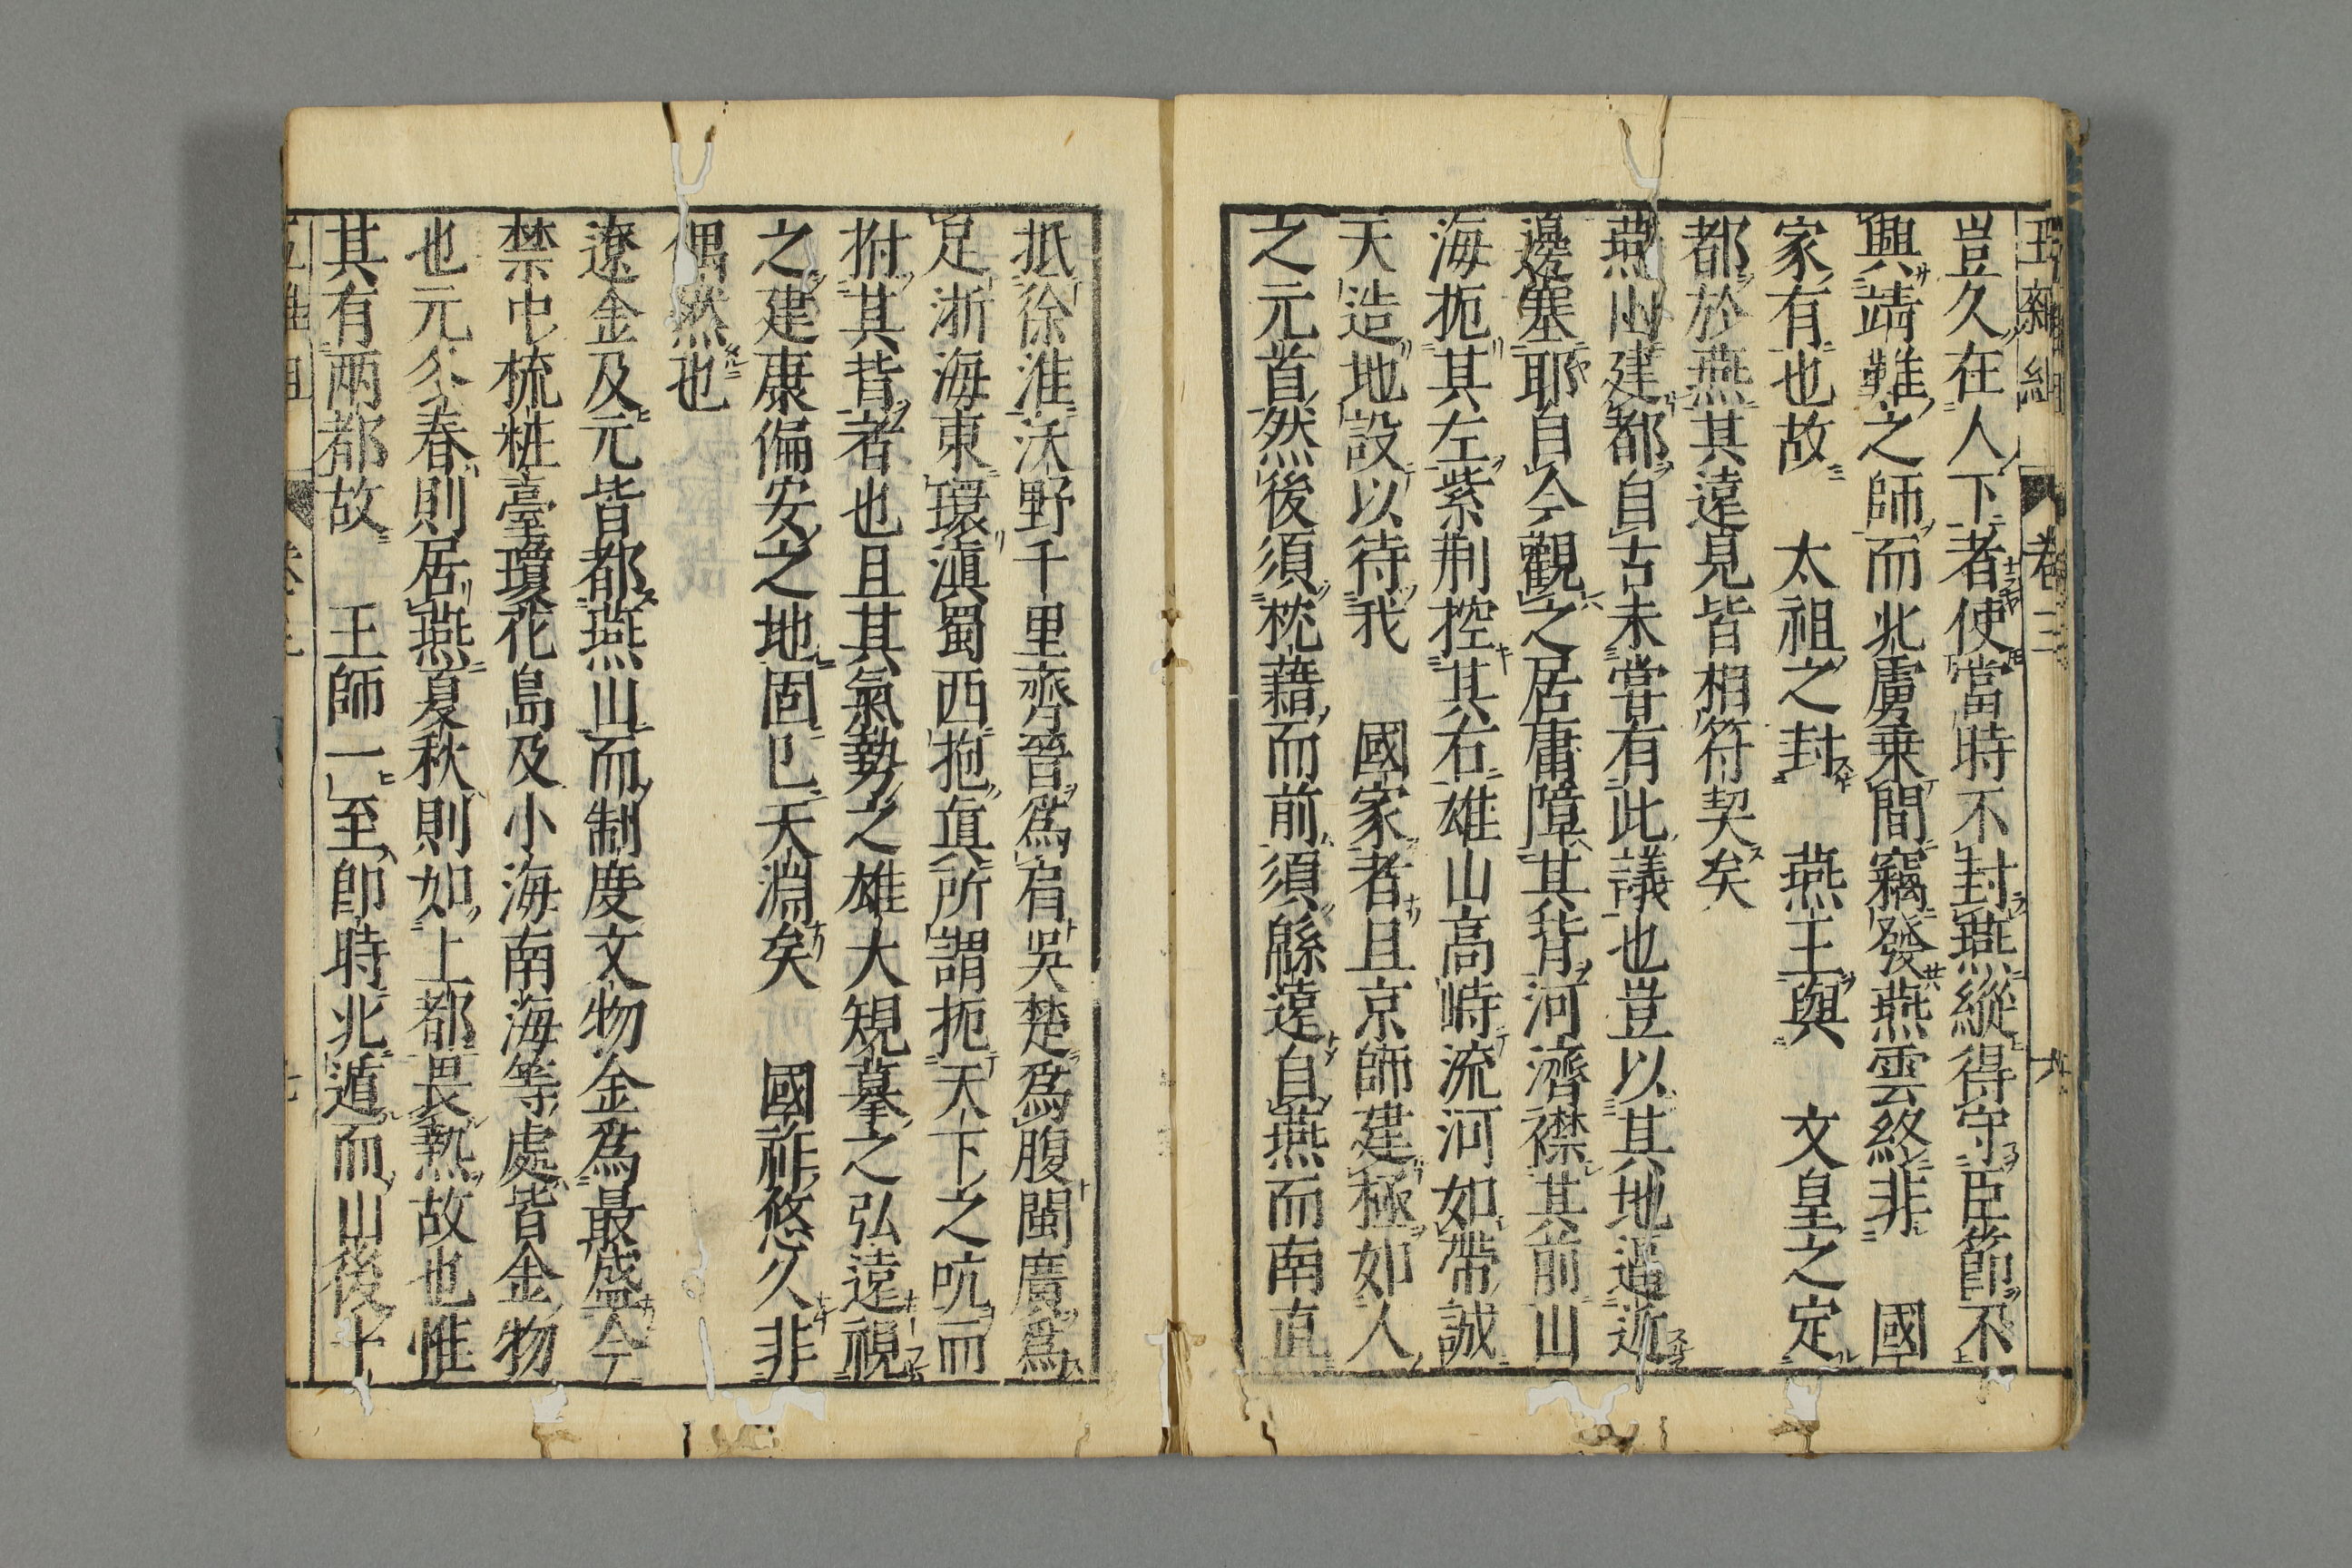 五雜組 卷三 六
豈久在人下者使當時不封燕縱得守臣節不
興靖難之師而北虜乗間竊發燕雲終非　國
家有也故　太祖之封　燕王與　文皇之定
都於燕其遠見皆相符契矣
燕山建都自古未嘗有此議也豈以其地逼近
邊塞耶自今觀之居庸障其背河濟襟其前山
海扼其左紫荆控其右雄山高峙流河如帶誠
天造地設以待我　國家者且京師建極如人
之元首然後須枕藉而前須綿遠自燕而南直
抵徐淮沃野千里齊晉爲肩吳楚爲腹閩廣爲
足浙海東環滇蜀西抱眞所謂扼天下之吭而
拊其背者也且其氣勢之雄大䂓摹之弘遠視
之建康偏安之地固已天淵矣　國祚悠久非
偶然也
遼金及元皆都燕山而制度文物金爲最盛今
禁中梳粧臺瓊花島及小海南海等處皆金物
也元冬春則居燕夏秋則如上都畏熱故也惟
其有两都故　王師一至卽時北遁而山後十